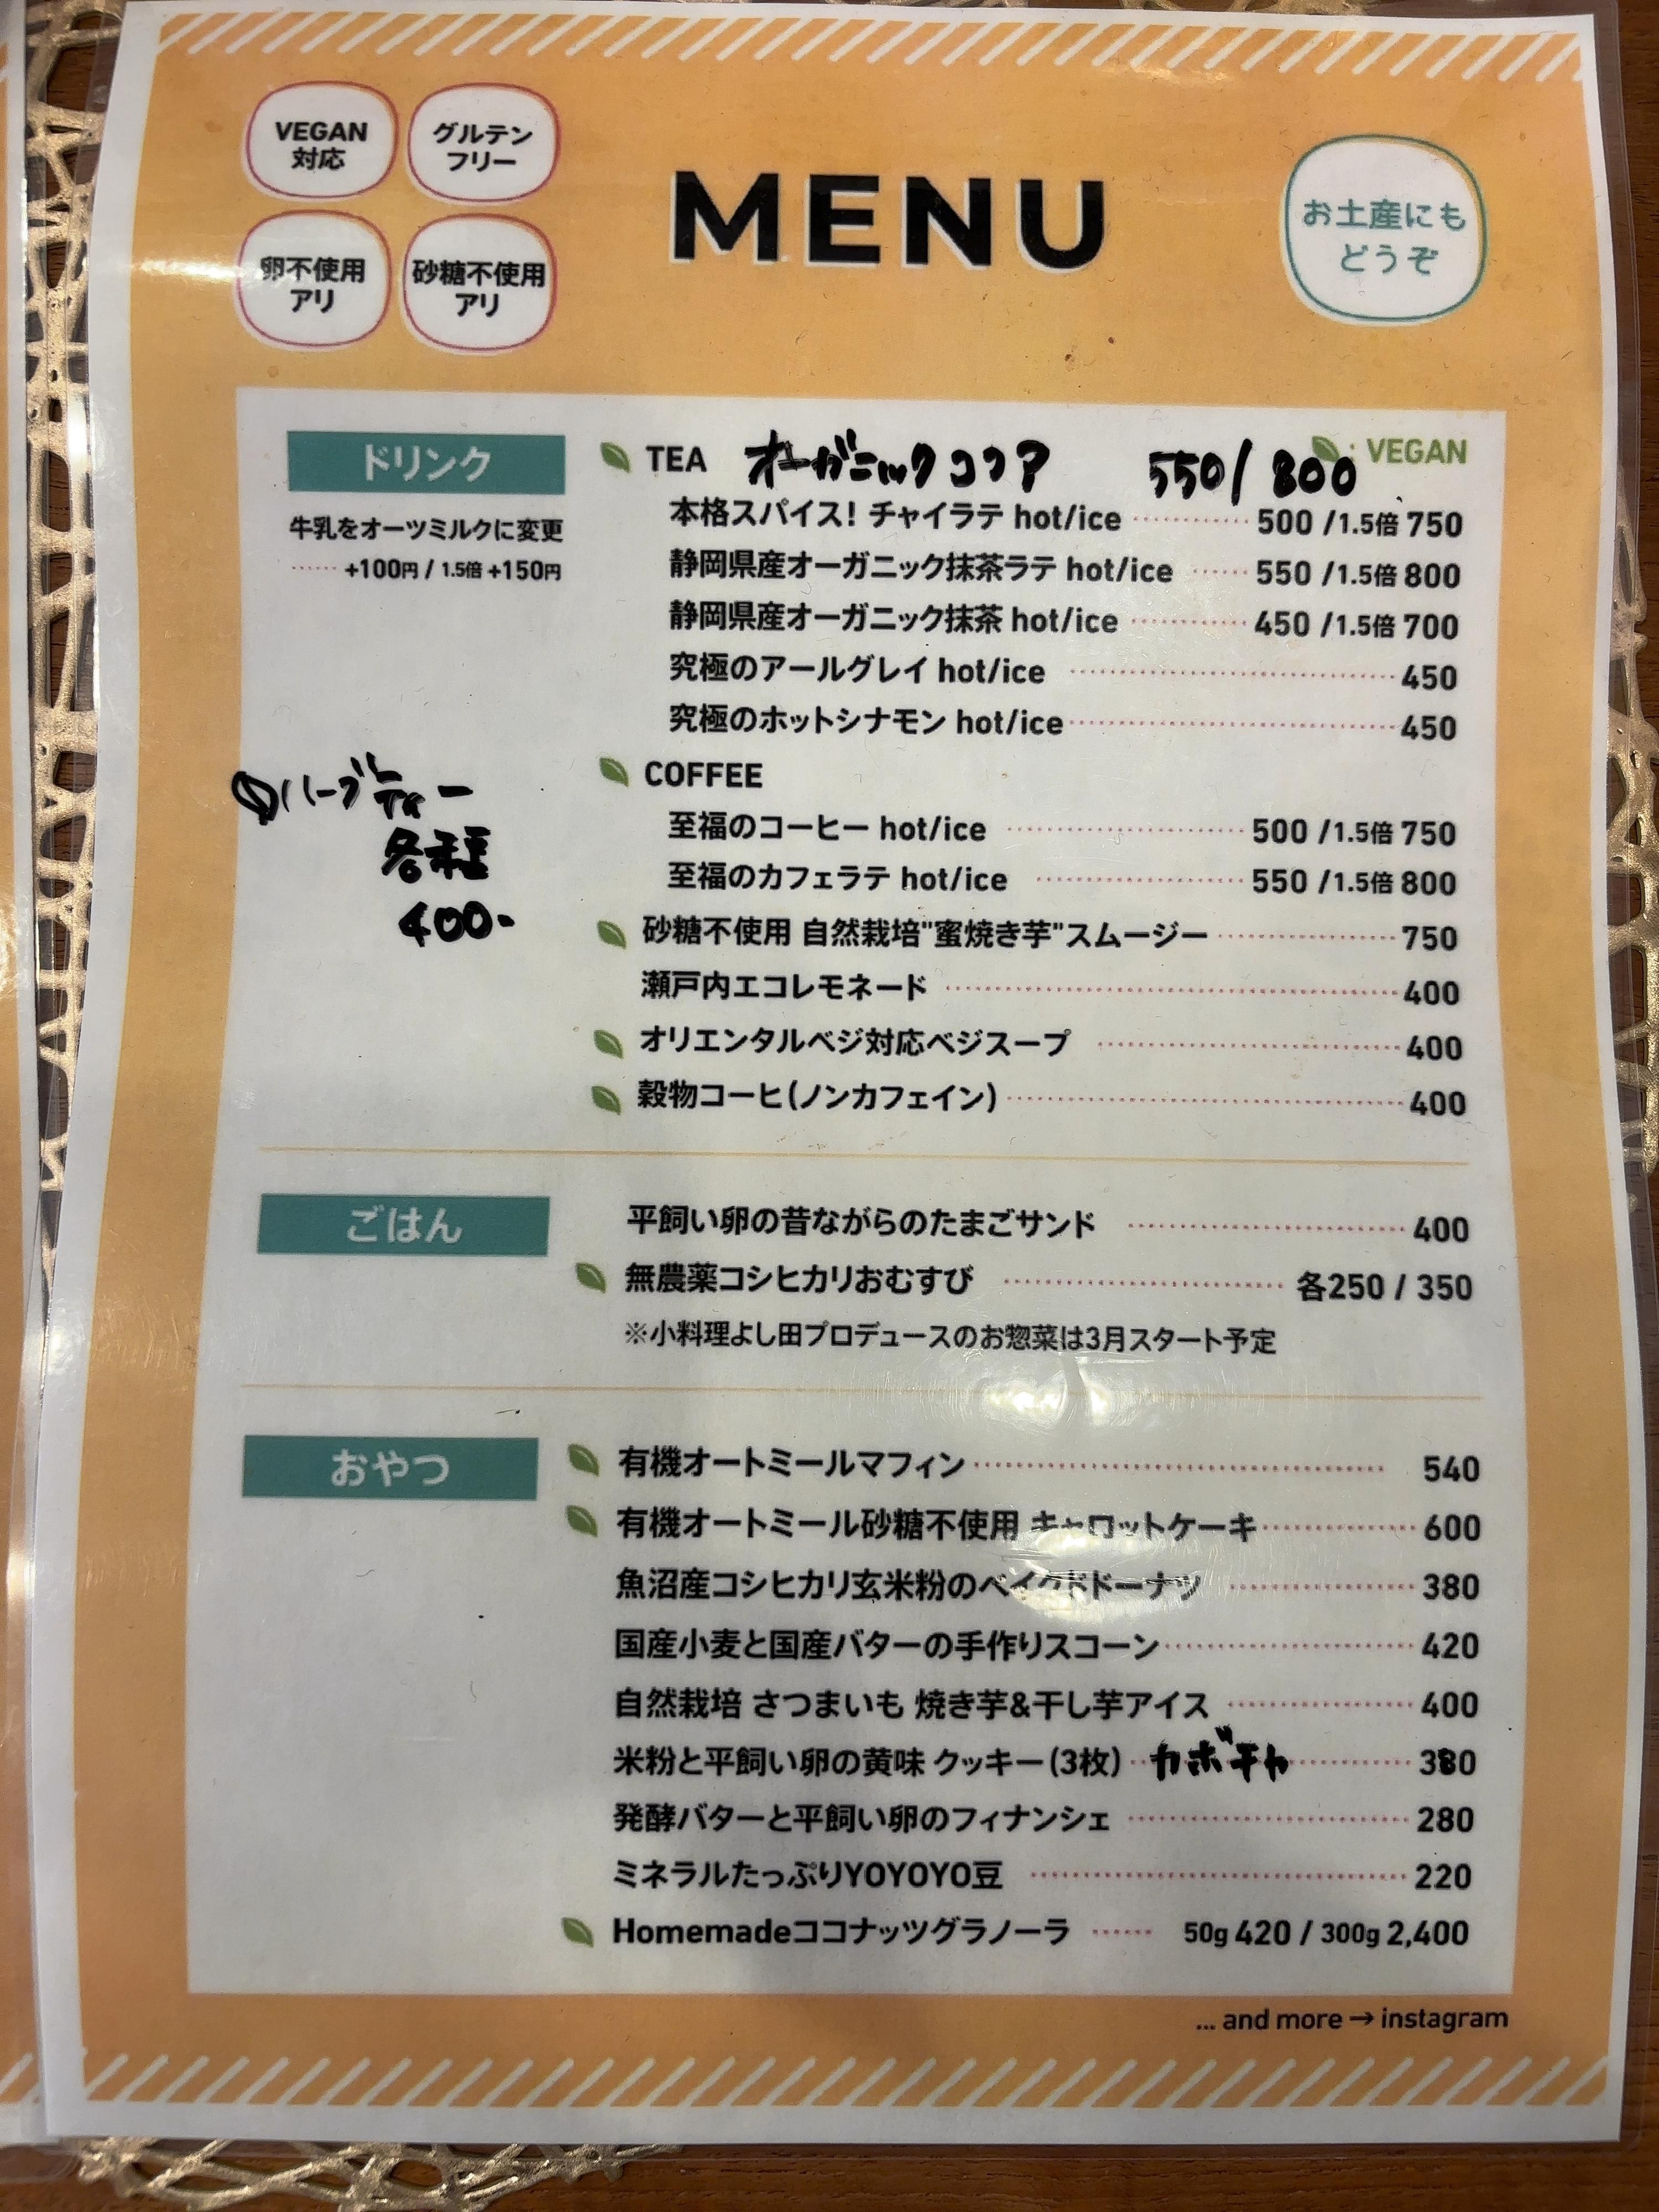 VEGAN
対応
グルテン
フリー
卵不使用
アリ
砂糖不使用
アリ
MENU
お土産にも
どうぞ
ドリンク
牛乳をオーツミルクに変更
······ +100円 / 1.5倍 +150円
ハーブティー
各種
400-
TEA オーガニックココア 550/800 : VEGAN
本格スパイス! チャイラテ hot/ice ············ 500 /1.5倍 750
静岡県産オーガニック抹茶ラテ hot/ice ······ 550 /1.5倍 800
静岡県産オーガニック抹茶 hot/ice ············ 450 /1.5倍 700
究極のアールグレイ hot/ice ············ 450
究極のホットシナモン hot/ice ············ 450
COFFEE
至福のコーヒー hot/ice ············ 500 /1.5倍 750
至福のカフェラテ hot/ice ············ 550 /1.5倍 800
砂糖不使用 自然栽培"蜜焼き芋"スムージー ············ 750
瀬戸内エコレモネード ············ 400
オリエンタルベジ対応ベジスープ ············ 400
穀物コーヒ(ノンカフェイン) ············ 400
ごはん
平飼い卵の昔ながらのたまごサンド ············ 400
無農薬コシヒカリおむすび ············ 各250 / 350
※小料理よし田プロデュースのお惣菜は3月スタート予定
おやつ
有機オートミールマフィン ············ 540
有機オートミール砂糖不使用 キャロットケーキ ············ 600
魚沼産コシヒカリ玄米粉のベイクドドーナツ ············ 380
国産小麦と国産バターの手作りスコーン ············ 420
自然栽培 さつまいも 焼き芋&干し芋アイス ············ 400
米粉と平飼い卵の黄味 クッキー(3枚) カボチャ ············ 380
発酵バターと平飼い卵のフィナンシェ ············ 280
ミネラルたっぷりYOYOYO豆 ············ 220
Homemadeココナッツグラノーラ ······ 50g 420 / 300g 2,400
... and more → instagram